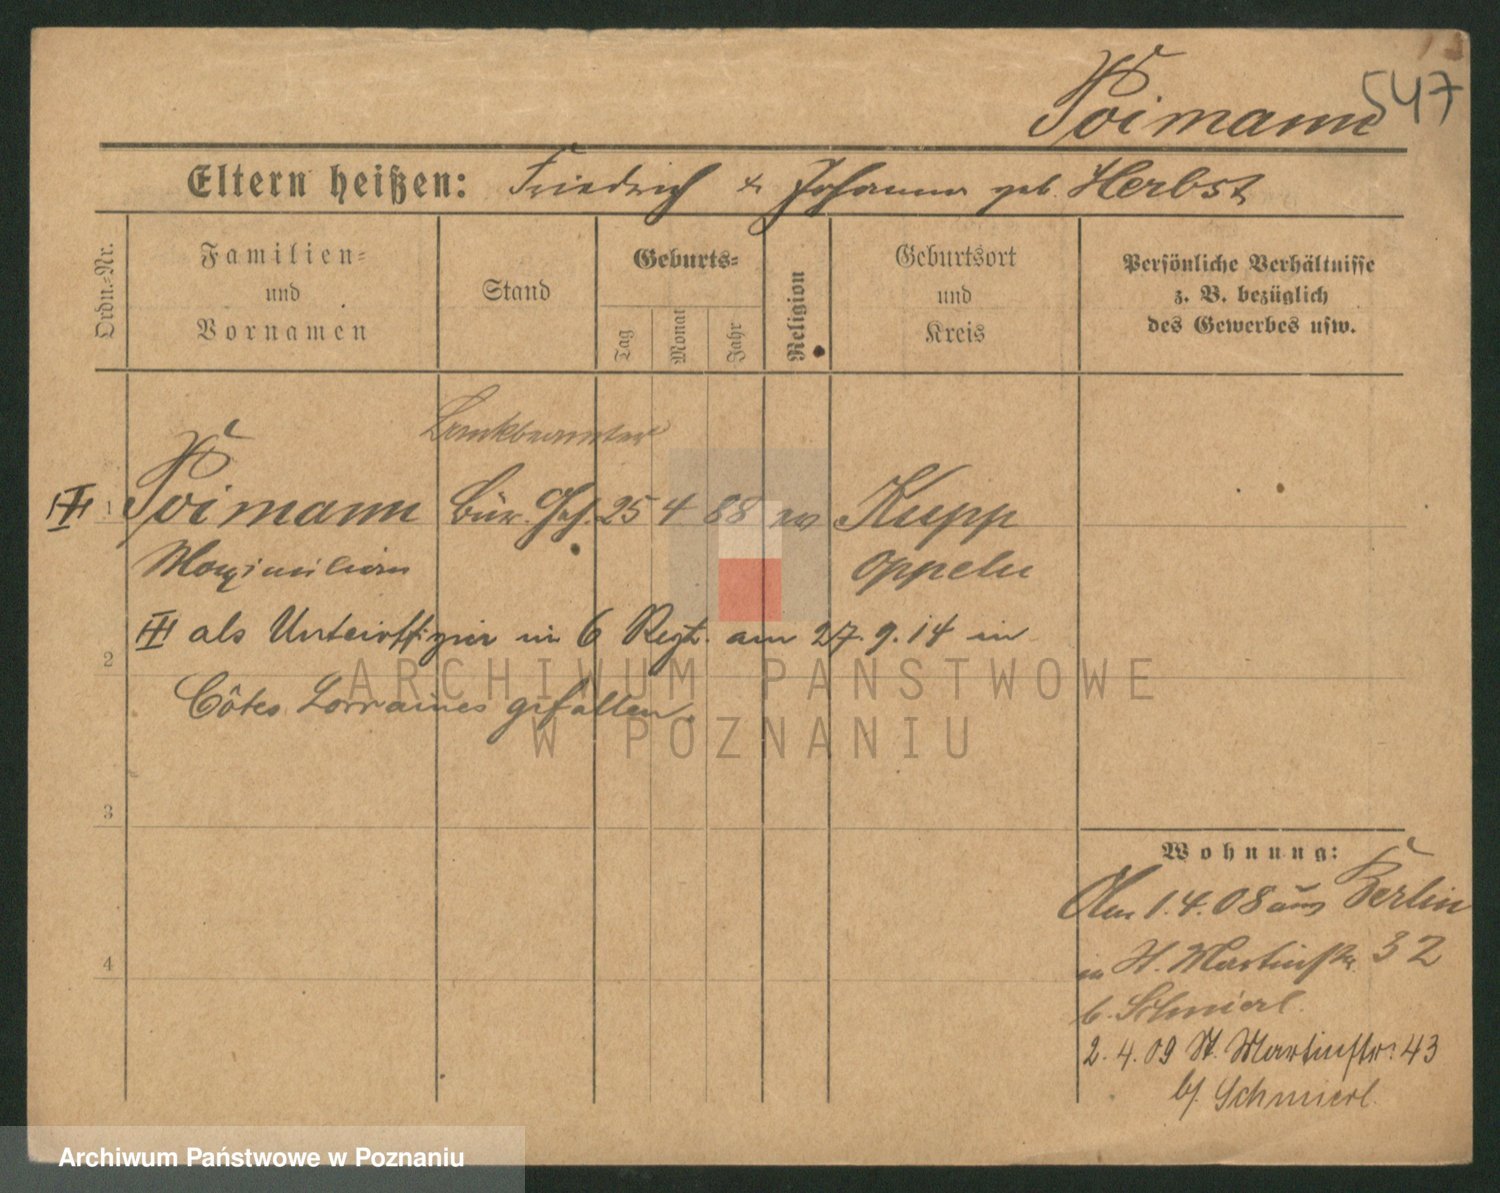 547
Poimann
Eltern heißen: Friedrich u. Johanna geb. Herbst
Ordn.=Nr.
Familien=
und
Vornamen
Stand
Geburts=
Tag
Monat
Jahr
Religion
Geburtsort
und
Kreis
Persönliche Verhältnisse
z. B. bezüglich
des Gewerbes usw.
Bankbeamter
1 Poimann Bür. Geh. 25 4 88 ev Kupp
Maximilian Oppeln
als Unteroffizier im 6 Regt. am 27.9.14 in
2
Côtes Lorraines gefallen.
3
4
Wohnung:
Am 1.4.08 aus Berlin
in St. Martinstr. 32
b. Schmierl.
2.4.09 St. Martinstr. 43
b/ Schmierl.
ARCHIWUM PAŃSTWOWE
W POZNANIU
Archiwum Państwowe w Poznaniu